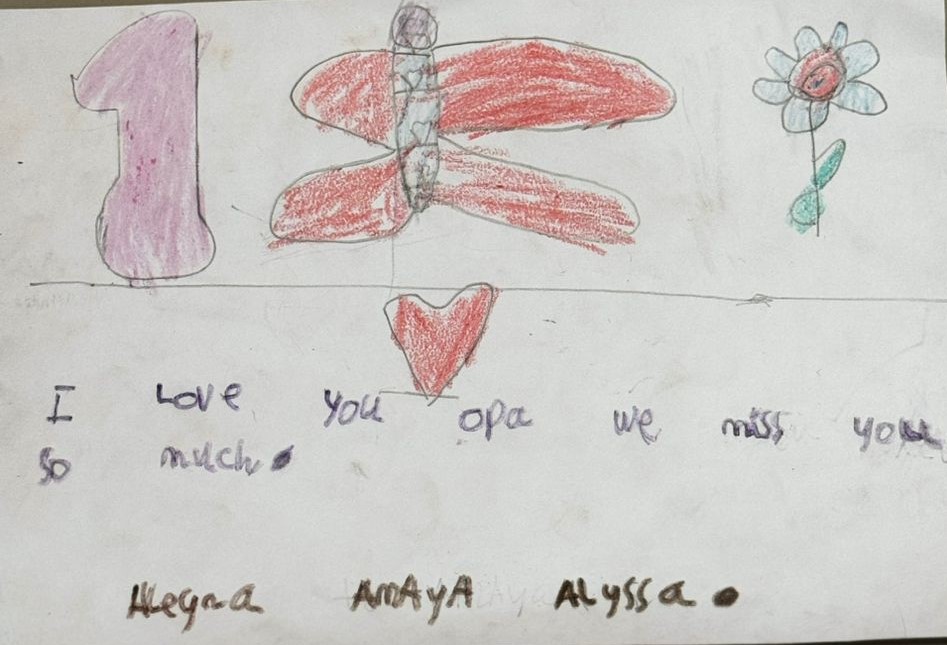 1
I Love you opa we miss you
so much.
Alegna AmAyA Alyssa.